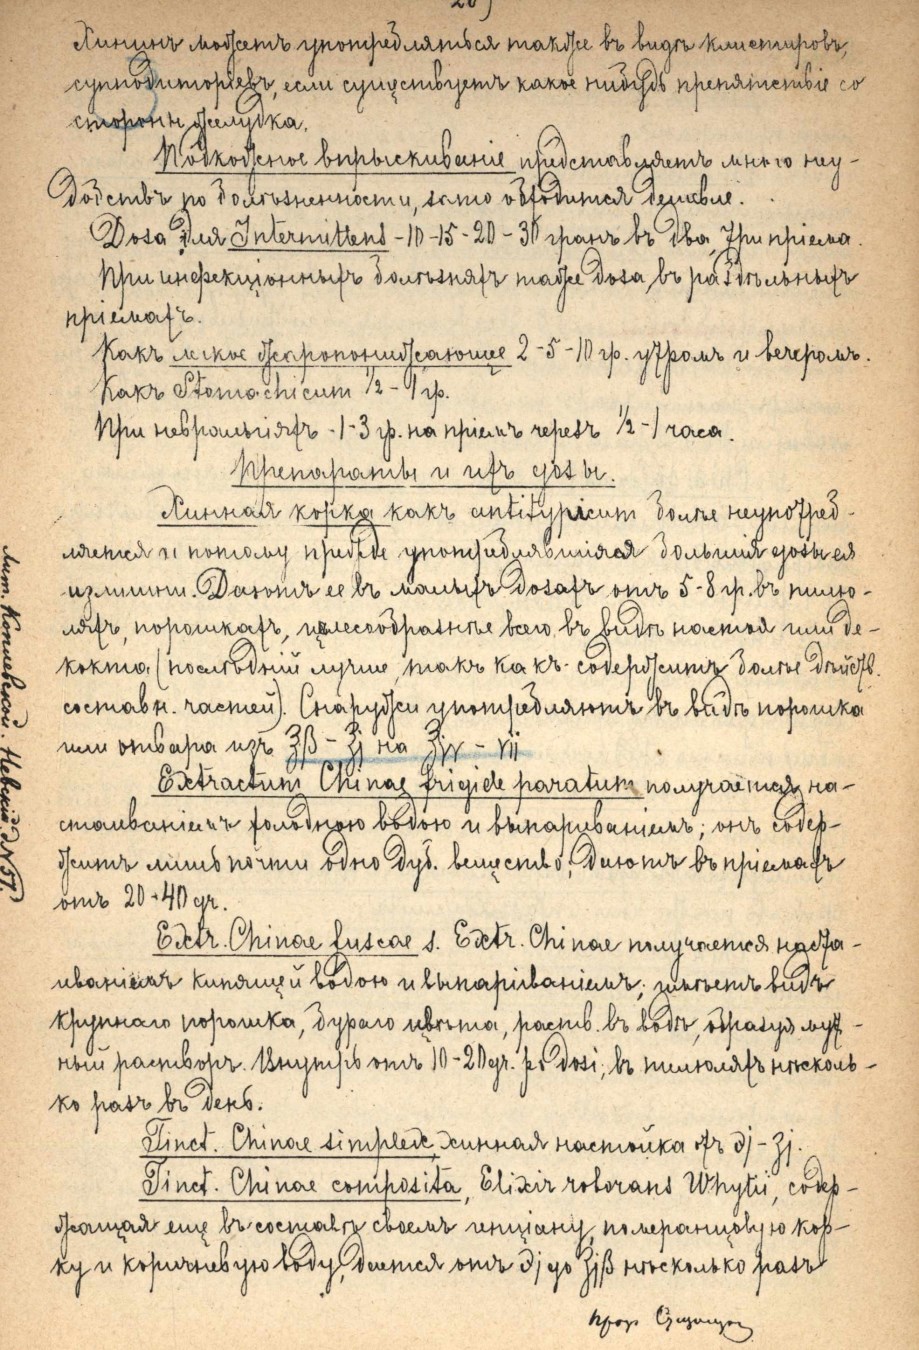 Хининъ можетъ употребляться также въ видѣ клистировъ,
суппозиторіевъ, если существуетъ какое нибудь препятствіе со
стороны желудка.
Подкожное впрыскиваніе представляетъ много неу-
добствъ по болѣзненности, зато обходится дешевле.
Doза для Intermittens - 10-15-20-30 гранъ въ два, три пріема.
При инфекціонныхъ болѣзняхъ таже doза, въ раздѣльныхъ
пріемахъ.
Какъ легкое жаропонижающее 2-5-10 гр. утромъ и вечеромъ.
Какъ Stomachicum ½-1 гр.
При невральгіяхъ -1-3 гр. на пріемъ черезъ ½-1 часа.
Препараты и ихъ дозы.
Хинная корка какъ antitypicum болѣе неупотреб-
ляется и потому прежде употреблявшіяся большія дозы ея
излишни. Даютъ ее въ малыхъ doзахъ отъ 5-8 гр. въ пилю-
ляхъ, порошкахъ, цѣлесообразнѣе всего въ видѣ настоя или де-
кокта (послѣдній лучше, такъ какъ содержитъ болѣе дѣйств.
составн. частей). Снаружи употребляютъ въ видѣ порошка
или отвара изъ ʒβ - ʒj на ℥iv - vii
Extractum Chinae frigide paratum получается на-
стаиваніемъ холодною водою и выпариваніемъ; онъ содер-
житъ лишь почти одно дуб. вещество; даютъ въ пріемахъ
отъ 20-40 gr.
Extr. Chinae fuscae s. Extr. Chinae получается наста-
иваніемъ кипящей водою и выпариваніемъ; имѣетъ видъ
крупнаго порошка, бураго цвѣта, раств. въ водѣ, образуя мут-
ный растворъ. Внутрь отъ 10-20 gr. pr dosi, въ пилюляхъ нѣсколь-
ко разъ въ день.
Tinct. Chinae simplex, хинная настойка отъ ℈j - ʒj.
Tinct. Chinae composita, Elixir roborans Whytii, содер-
жащая еще въ составѣ своемъ генціану, померанцовую кор-
ку и коричневую воду, дается отъ ℈j до ʒjβ нѣсколько разъ
проф.
Лит. Коплевской. Невскій. д. № 57.